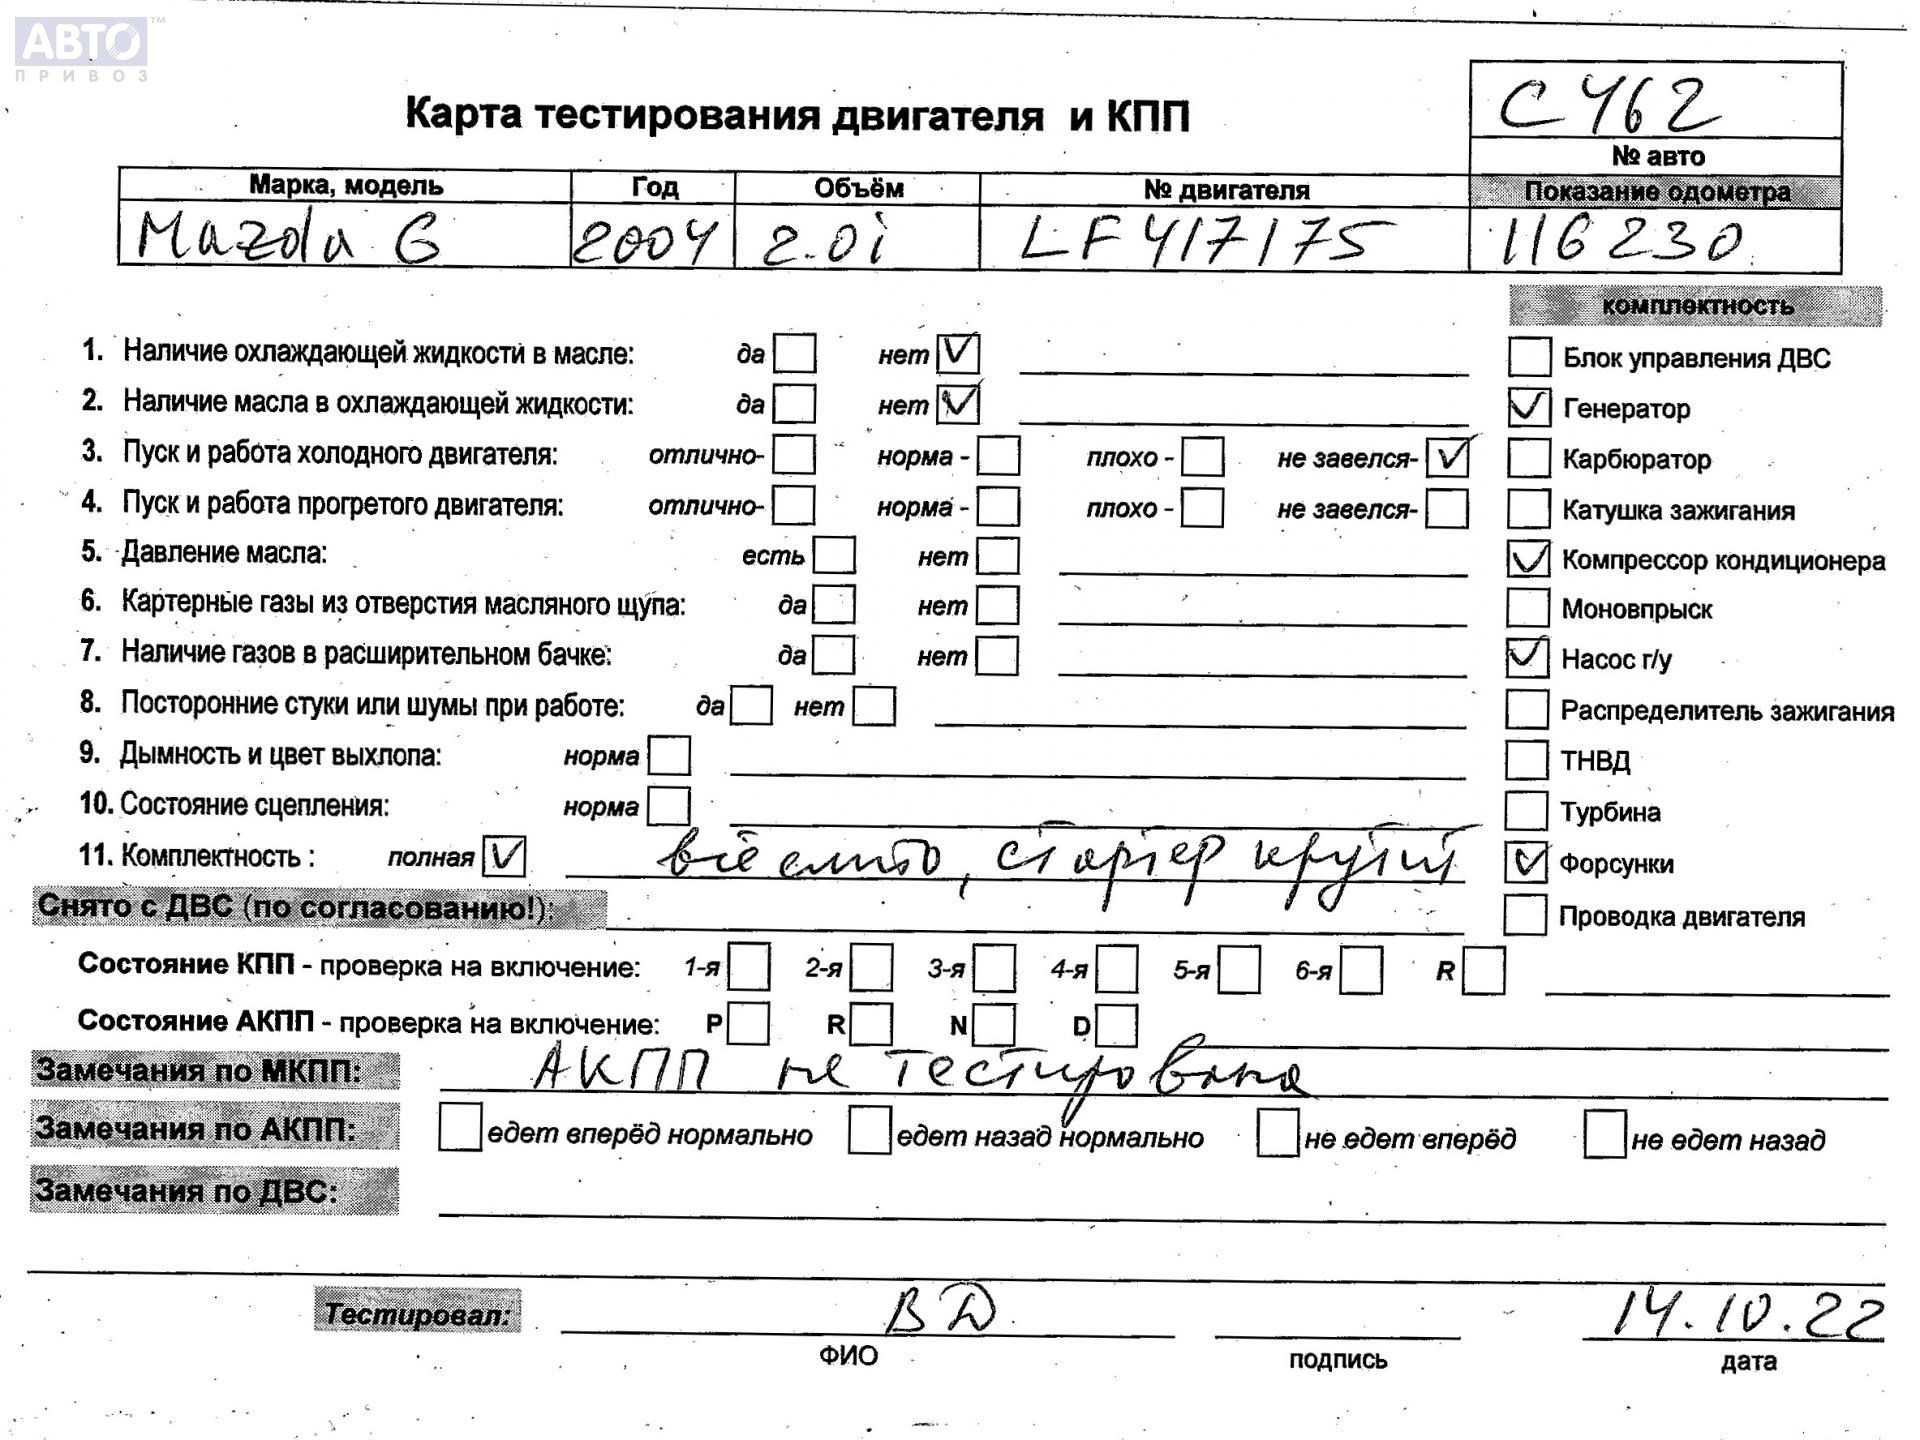 АВТО™
ПРИВОЗ
Карта тестирования двигателя и КПП
С 462
№ авто
Марка, модель Год Объём № двигателя Показание одометра
Mazda 6 2004 2.0i LF417175 116230
комплектность
1. Наличие охлаждающей жидкости в масле: да нет ✓ Блок управления ДВС
2. Наличие масла в охлаждающей жидкости: да нет ✓ ✓ Генератор
3. Пуск и работа холодного двигателя: отлично- норма - плохо - не завелся- ✓ Карбюратор
4. Пуск и работа прогретого двигателя: отлично- норма - плохо - не завелся- Катушка зажигания
5. Давление масла: есть нет ✓ Компрессор кондиционера
6. Картерные газы из отверстия масляного щупа: да нет Моновпрыск
7. Наличие газов в расширительном бачке: да нет ✓ Насос г/у
8. Посторонние стуки или шумы при работе: да нет Распределитель зажигания
9. Дымность и цвет выхлопа: норма ТНВД
10. Состояние сцепления: норма Турбина
11. Комплектность : полная ✓ всё слито, стартер крутит ✓ Форсунки
Снято с ДВС (по согласованию!): Проводка двигателя
Состояние КПП - проверка на включение: 1-я 2-я 3-я 4-я 5-я 6-я R
Состояние АКПП - проверка на включение: P R N D
Замечания по МКПП: АКПП не тестирована
Замечания по АКПП: едет вперёд нормально едет назад нормально не едет вперёд не едет назад
Замечания по ДВС:
Тестировал: ВД 14.10.22
ФИО подпись дата